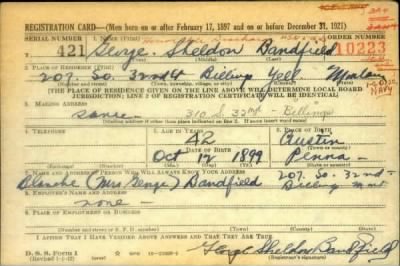 REGISTRATION CARD—(Men born on or after February 17, 1897 and on or before December 31, 1921)
SERIAL NUMBER 1. NAME (Print) ORDER NUMBER
421 George Sheldon Bandfield 10223
2. PLACE OF RESIDENCE (Print)
207. So. 32nd St Billings Yell. Montana
[THE PLACE OF RESIDENCE GIVEN ON THE LINE ABOVE WILL DETERMINE LOCAL BOARD
JURISDICTION; LINE 2 OF REGISTRATION CERTIFICATE WILL BE IDENTICAL]
3. MAILING ADDRESS
same 310 32nd Billings
[Mailing address if other than place indicated on line 2. If same insert word same]
4. TELEPHONE 5. AGE IN YEARS 6. PLACE OF BIRTH
42 Austin
DATE OF BIRTH
Oct 12 1899 Penna
7. NAME AND ADDRESS OF PERSON WHO WILL ALWAYS KNOW YOUR ADDRESS 207. So. 32nd-
Blanche (Mrs George) Bandfield Billings Mont
8. EMPLOYER'S NAME AND ADDRESS
none
9. PLACE OF EMPLOYMENT OR BUSINESS
I AFFIRM THAT I HAVE VERIFIED ABOVE ANSWERS AND THAT THEY ARE TRUE.
D. S. S. Form 1 George Sheldon Bandfield